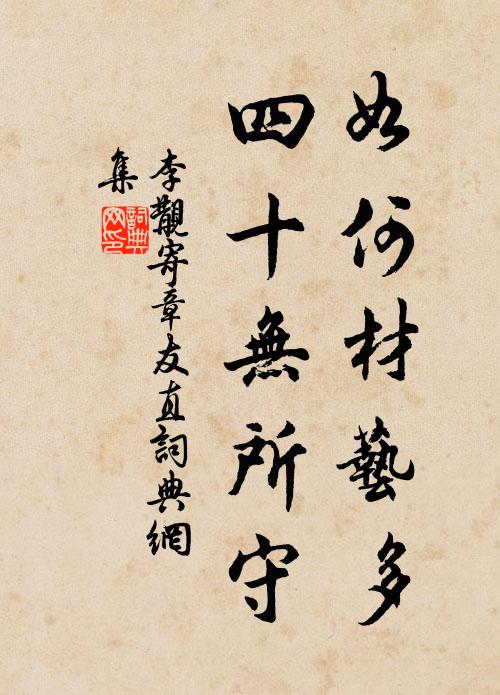 如何材藝多
四十無所守
李覯寄章友直詞典網
集
詞典
网印